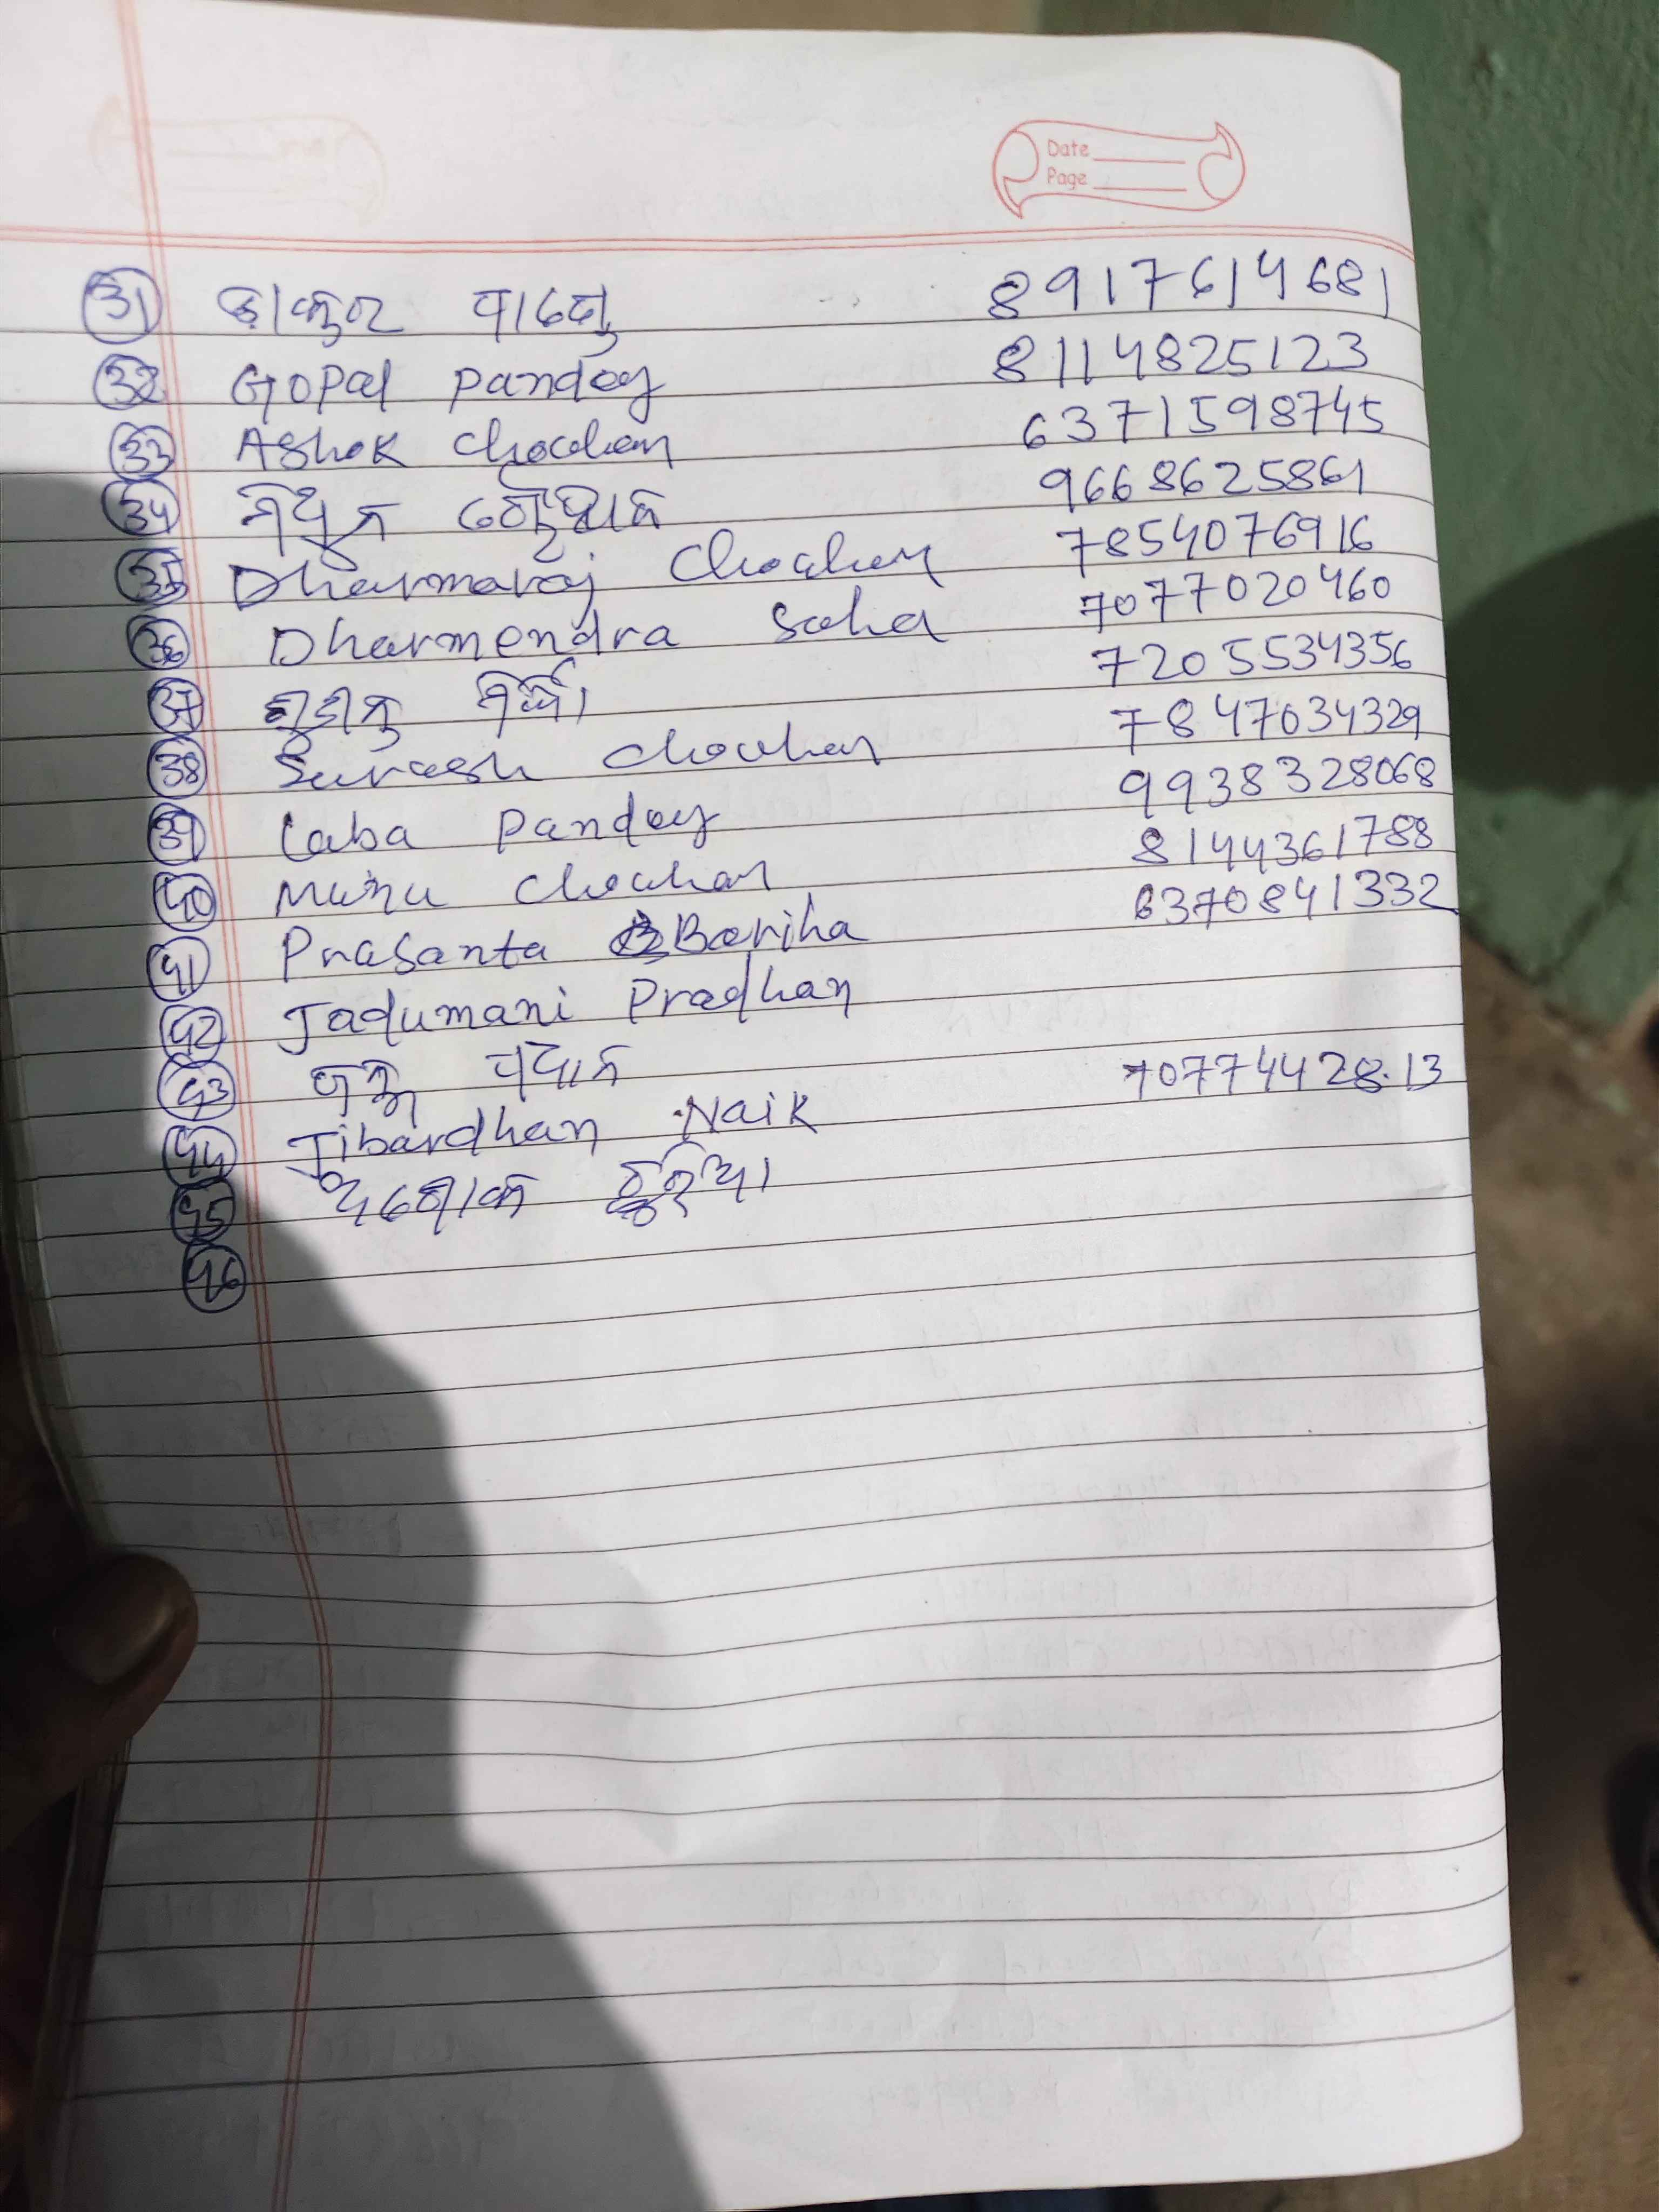 Date
Page
31 ଠାକୁର ପାଣ୍ଡେ 8917614681
32 Gopal Pandey 8114825123
33 Ashok Chouhan 6371598745
34 ମିଥୁନ 9668625861
35 Dharmaraj Chouhan 7854076916
36 Dharmendra Saha 7077020460
37 7205534356
38 Suresh Chouhan 7847034329
39 Laba Pandey 9938328068
40 Munu Chouhan 8144361788
41 Prasanta Bariha 6370841332
42 Jadumani Pradhan
43 ପ୍ରଧାନ
44 Jibardhan Naik 7077442813
45 ଅଶୋକ
46